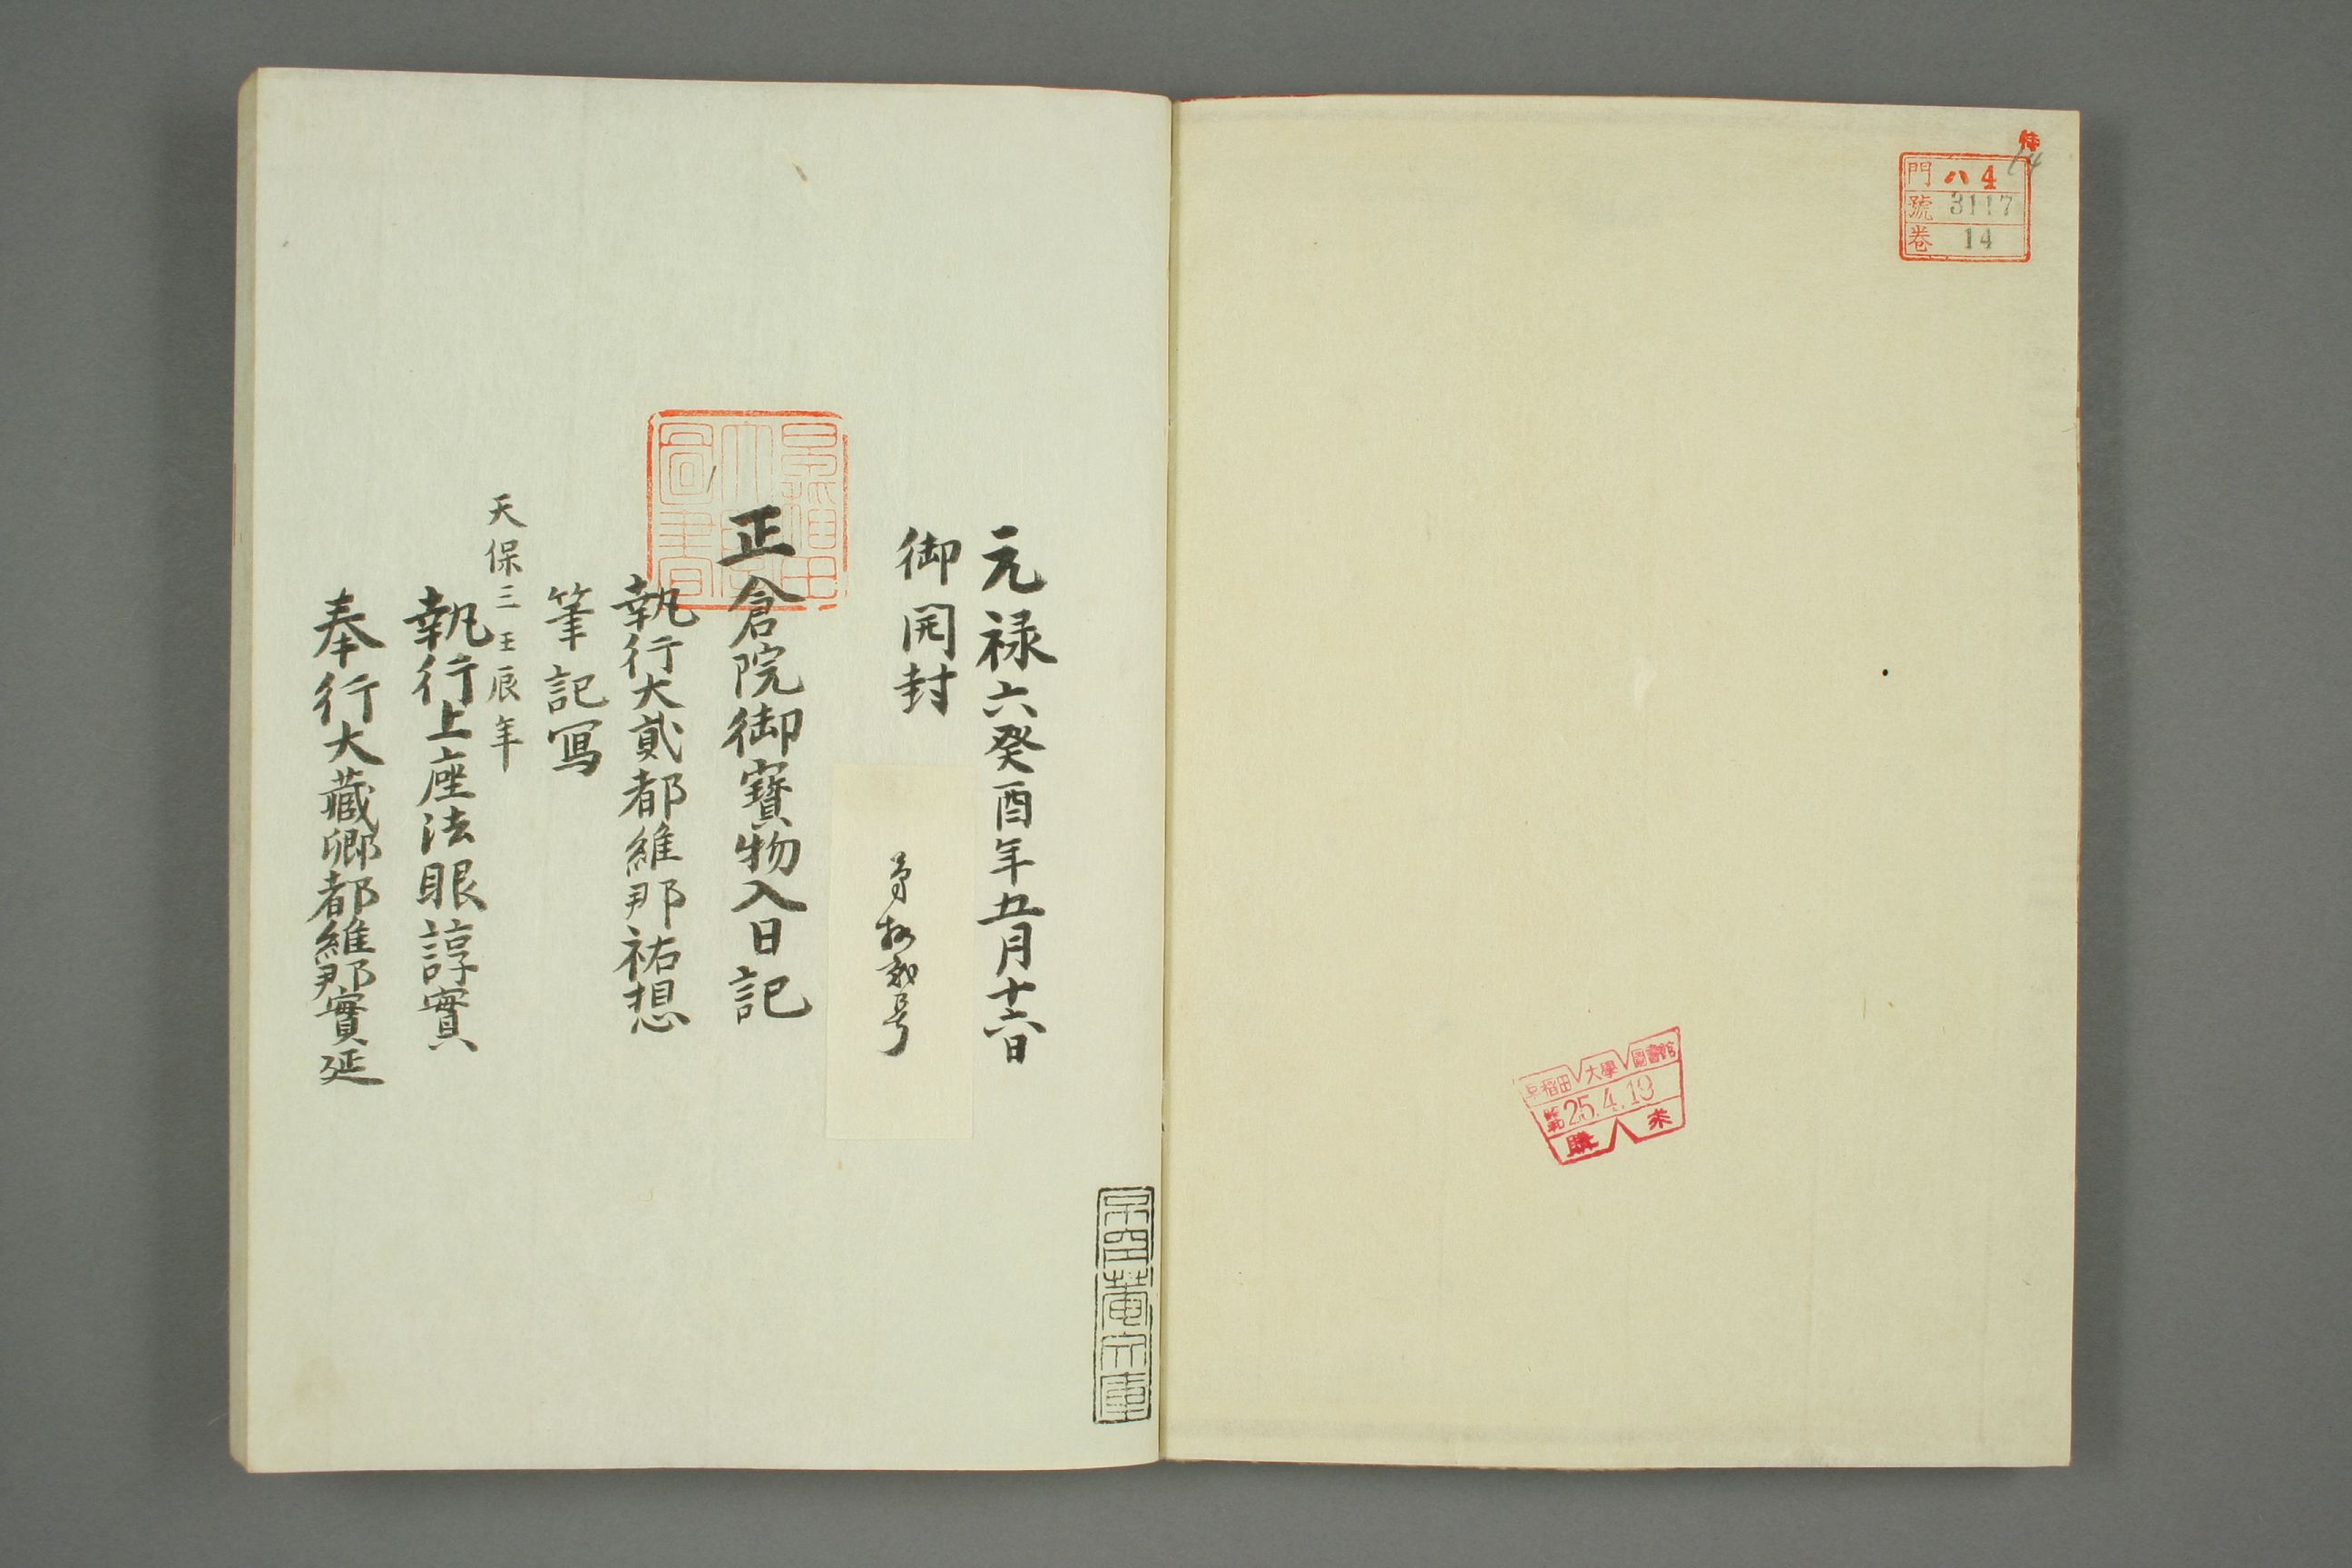 特
14
門 ハ4
號 3117
卷 14
早稲田大學圖書館
25.4.19
購 求
元禄六癸酉年五月十六日
御開封
早稲田大學圖書
正倉院御寳物入日記
執行大貳都維那祐想
筆記写
天保三壬辰年
執行上座法眼諄實
奉行大藏卿都維那實延